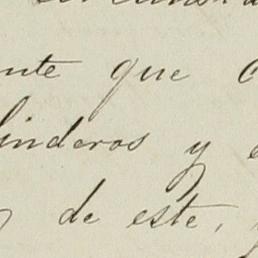 ente que
linderos y
y de este,